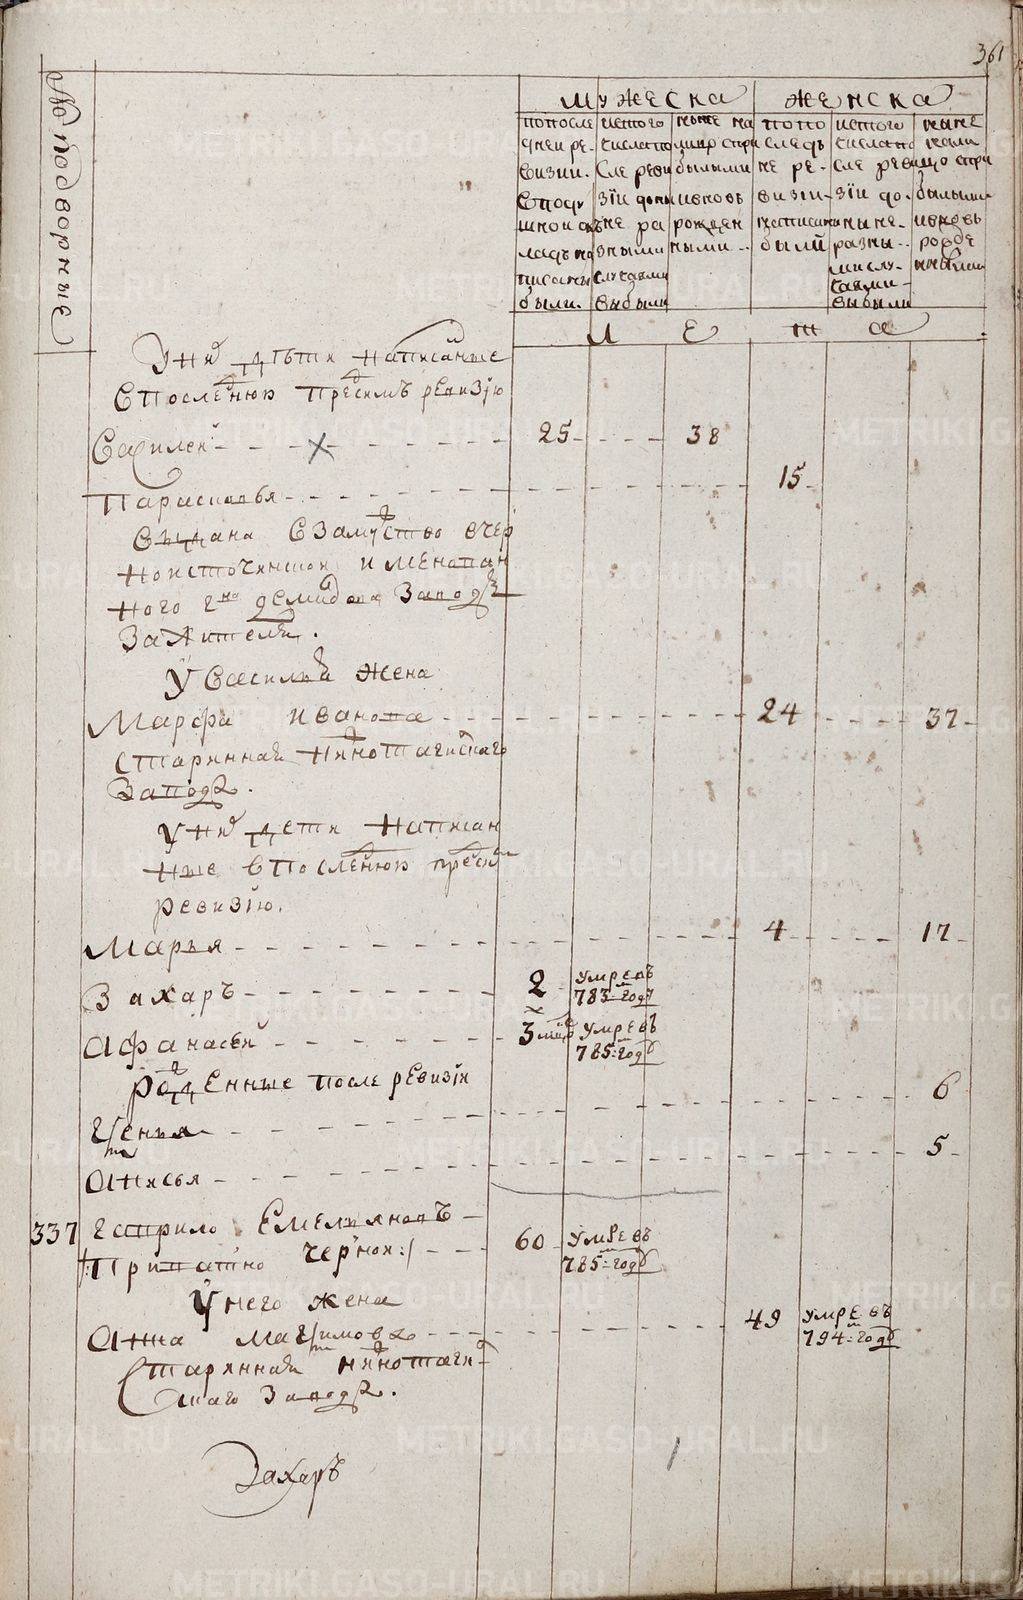 361
Подворные
мужеска
женска
попосле
дней ре-
визии.
вподу
шной окъ
ладъ на
писаны
были.
истого
числапо
сле реви
зїи до ны
не ра
зными
случаями
выбыли
ныне на
лицо спри
былыми
ивновь
рожден
ными
по по
следъ
не ре-
визїи
написаны
были
исчого
числа по
сле реви
зїи до.
ны не.
разны
ми слу-
чаями
выбыли
ныне
нали
цо спри
былыми
ивновь
рожде
нными
л е т а
У них дети написанные
впоследнюю пред симъ ревизїю
Василей 25 38
Парасковья 15
выдана взамужство вчер
ноисточинской именован
ного гна демидова заводъ
зажителя.
У василья жена
Марфа иванова 24 37
старинная нижнотагилскаго
завода.
У них дети написан
ные впоследнюю пред сим
ревизїю.
Марья 4 17
Захаръ 2 умре въ
783 м году
Афанасей 3 мцовъ умре въ
785 м году
рожденные после ревизїи
6
Ксенья
5
Анисья
337 гаврило Емельяновъ
Приватно черной:/ 60 умре въ
785 м году
У него жена
Анна максимова 49 умре въ
794 м году
Старинная нижнотаги
лскаго завода.
Захаръ
METRIKI.GASO-URAL.RU